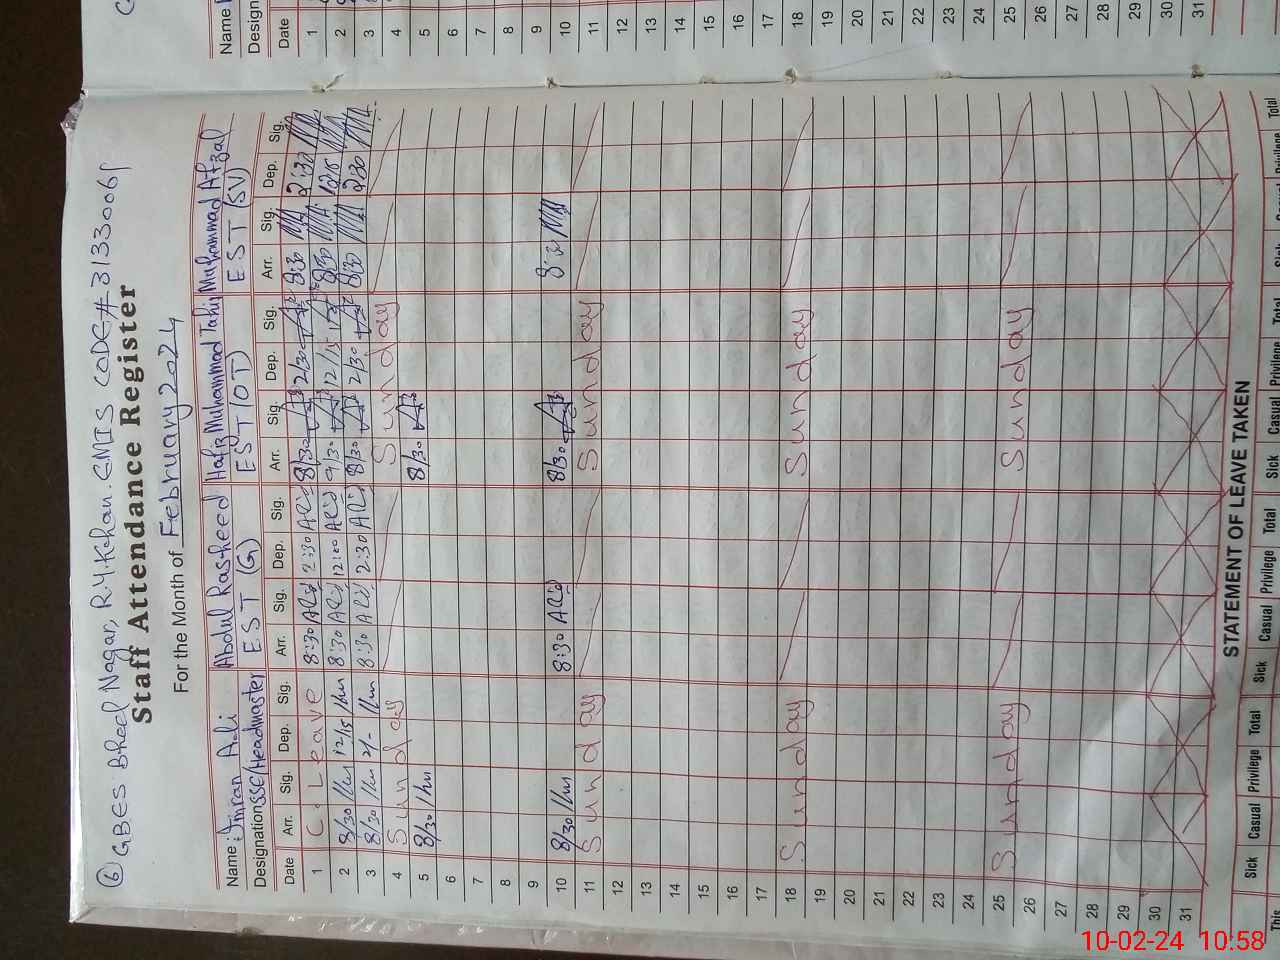 6 GBES Bheel Nagar, R.Y.Khan. EMIS CODE# 31330061
Staff Attendance Register
For the Month of February 2024
Name: Imran Adi Abdul Rasheed Hafiz Muhammad Tahir Muhammad Afzal
Designation SSE/Headmaster EST (G) EST (OT) EST (SV)
Date Arr. Sig. Dep. Sig. Arr. Sig. Dep. Sig. Arr. Sig. Dep. Sig. Arr. Sig. Dep. Sig.
1 C. Leave 8:30 2:30 8/30 2/30 8:30 2:30
2 8/30 12/15 8:30 12:00 9/30 12/15 8:30 12:15
3 8/30 2/- 8:30 2:30 8/30 2/30 8:30 2:30
4 Sunday Sunday
5 8/30 8/30
6
7
8
9
10 8/30 8:30 8/30 8:30
11 Sunday Sunday
12
13
14
15
16
17
18 Sunday Sunday
19
20
21
22
23
24
25 Sunday Sunday
26
27
28
29
30
31
STATEMENT OF LEAVE TAKEN
Sick Casual Privilege Total Sick Casual Privilege Total Sick Casual Privilege Total
This
Name
Design
Date
1
2
3
4
5
6
7
8
9
10
11
12
13
14
15
16
17
18
19
20
21
22
23
24
25
26
27
28
29
30
31
10-02-24 10:58